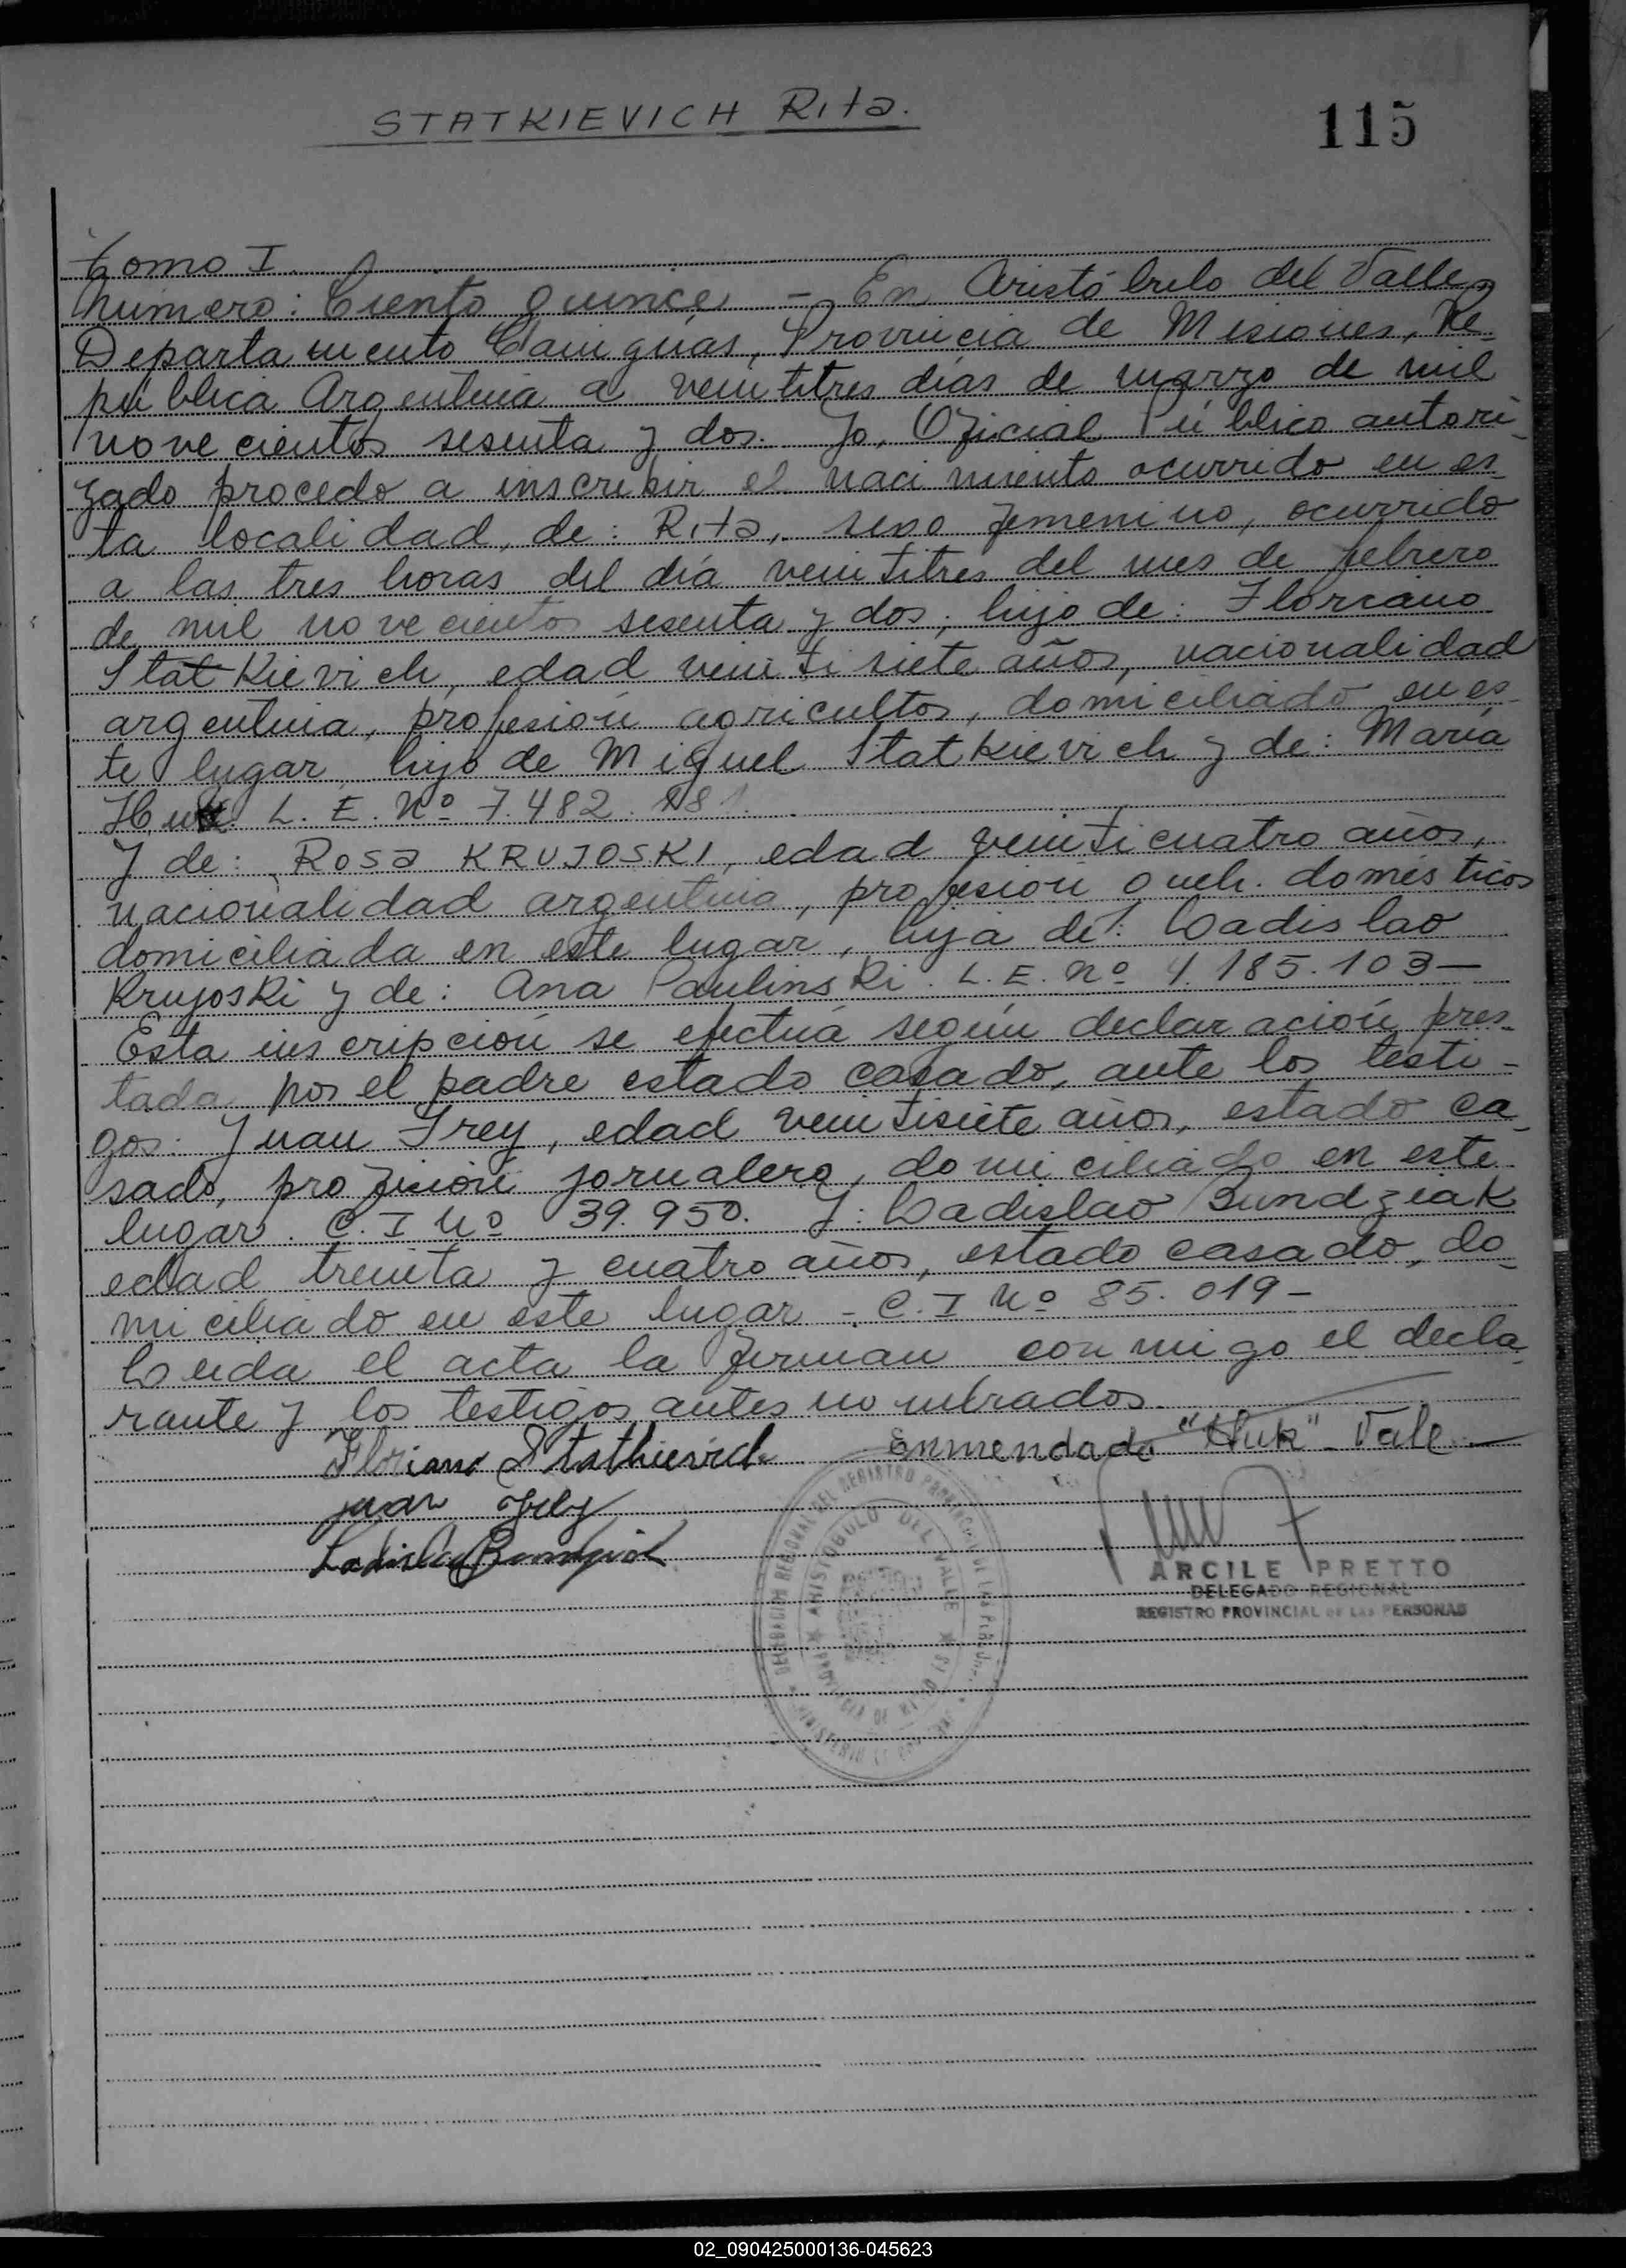 STATKIEVICH Rita.
115
Tomo I
Número: Ciento quince - En Aristóbulo del Valle,
Departamento Cainguás, Provincia de Misiones, Re-
pública Argentina a veintitres días de marzo de mil
novecientos sesenta y dos. Yo, Oficial Público autori-
zado procedo a inscribir el nacimiento ocurrido en es-
ta localidad, de: Rita, sexo femenino, ocurrido
a las tres horas del día veintitres del mes de febrero
de mil novecientos sesenta y dos; hijo de: Floriano
Statkievich, edad veintisiete años, nacionalidad
argentina, profesión agricultor, domiciliado en es-
te lugar, hijo de Miguel Statkievich y de: María
Huk. L. E. Nº 7.482.181.
Y de: Rosa KRUJOSKI, edad veinticuatro años,
nacionalidad argentina, profesión queh. domésticos
domiciliada en este lugar, hija de: Ladislao
Krujoski y de: Ana Paulinski. L. E. Nº 4.185.103—
Esta inscripción se efectúa según declaración pres-
tada por el padre estado casado, ante los testi-
gos: Juan Frey, edad veintisiete años, estado ca-
sado, profisión jornalero, domiciliado en este
lugar. C. I Nº 39.950. Y: Ladislao Bundziak
edad treinta y cuatro años, estado casado, do-
miciliado en este lugar - C. I Nº 85.019-
Leída el acta la firman conmigo el decla-
rante y los testigos antes nombrados.
Floriano Statkievich Enmendado "Huk" - Vale
juan frey
Ladislao Bundziak
ARCILE PRETTO
DELEGADO REGIONAL
REGISTRO PROVINCIAL DE LAS PERSONAS
ARISTOBULO DEL VALLE
02_090425000136-045623